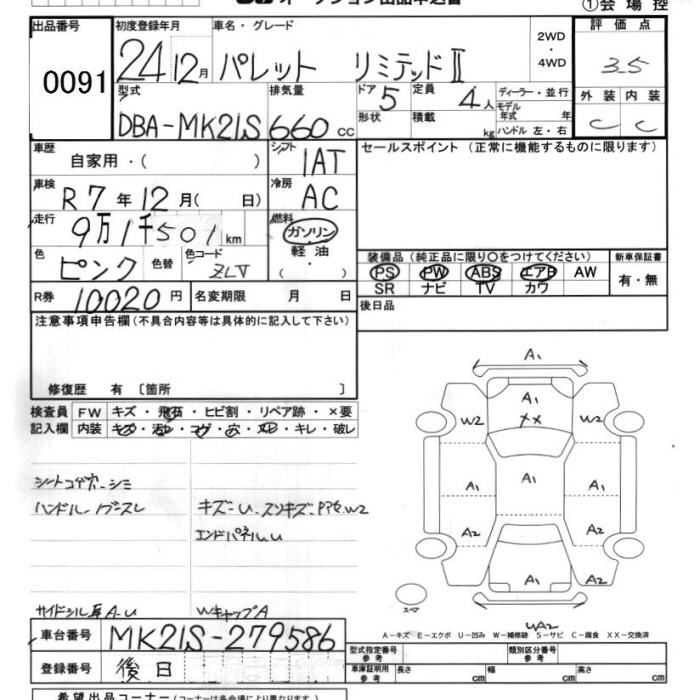 ①会 場 控
出品番号
0091
初度登録年月
24 12月
車名・グレード
パレット リミテッドⅡ
2WD
・
4WD
評 価 点
3.5
型式
DBA-MK21S
排気量
660 cc
ドア 5
形状
定員 4人
積載 kg
ディーラー・並 行
モデル
年式 年
ハンドル 左・右
外 装 内 装
C C
車歴
自家用・( )
シフト
1AT
セールスポイント (正常に機能するものに限ります)
車検
R7 年 12 月( 日)
冷房
AC
走行
9万1千501 km
燃料
ガソリン
・
軽 油
・
( )
色
ピンク
色替
色コード
ZLV
装備品 (純正品に限り○をつけてください)
PS PW ABS エアB AW
SR ナビ TV カワ
新車保証書
有・無
R券 10020 円
名変期限 月 日
後日品
注意事項申告欄 (不具合内容等は具体的に記入して下さい)
修復歴 有 〔箇所 〕
検査員
記入欄
FW キズ・飛石・ヒビ割・リペア跡・×要
内装 キズ・汚レ・コゲ・穴・スレ・キレ・破レ
シートコゲ穴-シミ
ハンドル-スレ
キズ-U.スソキズ-PPモW2
エンドパネルU
サイドシル耳A-U
WキャップA
A1
A1
××
W2 W2
A1 A1 A1
A2 A2
A1
A2 A2
UA2
スペア
A-キズ E-エクボ U-凹み W-補修跡 S-サビ C-腐食 XX-交換済
車台番号 MK21S-279586
登録番号 後日
型式指定番号 類別区分番号
車庫証明用
参 考
長さ cm 幅 cm 高さ cm
希望出品コーナー